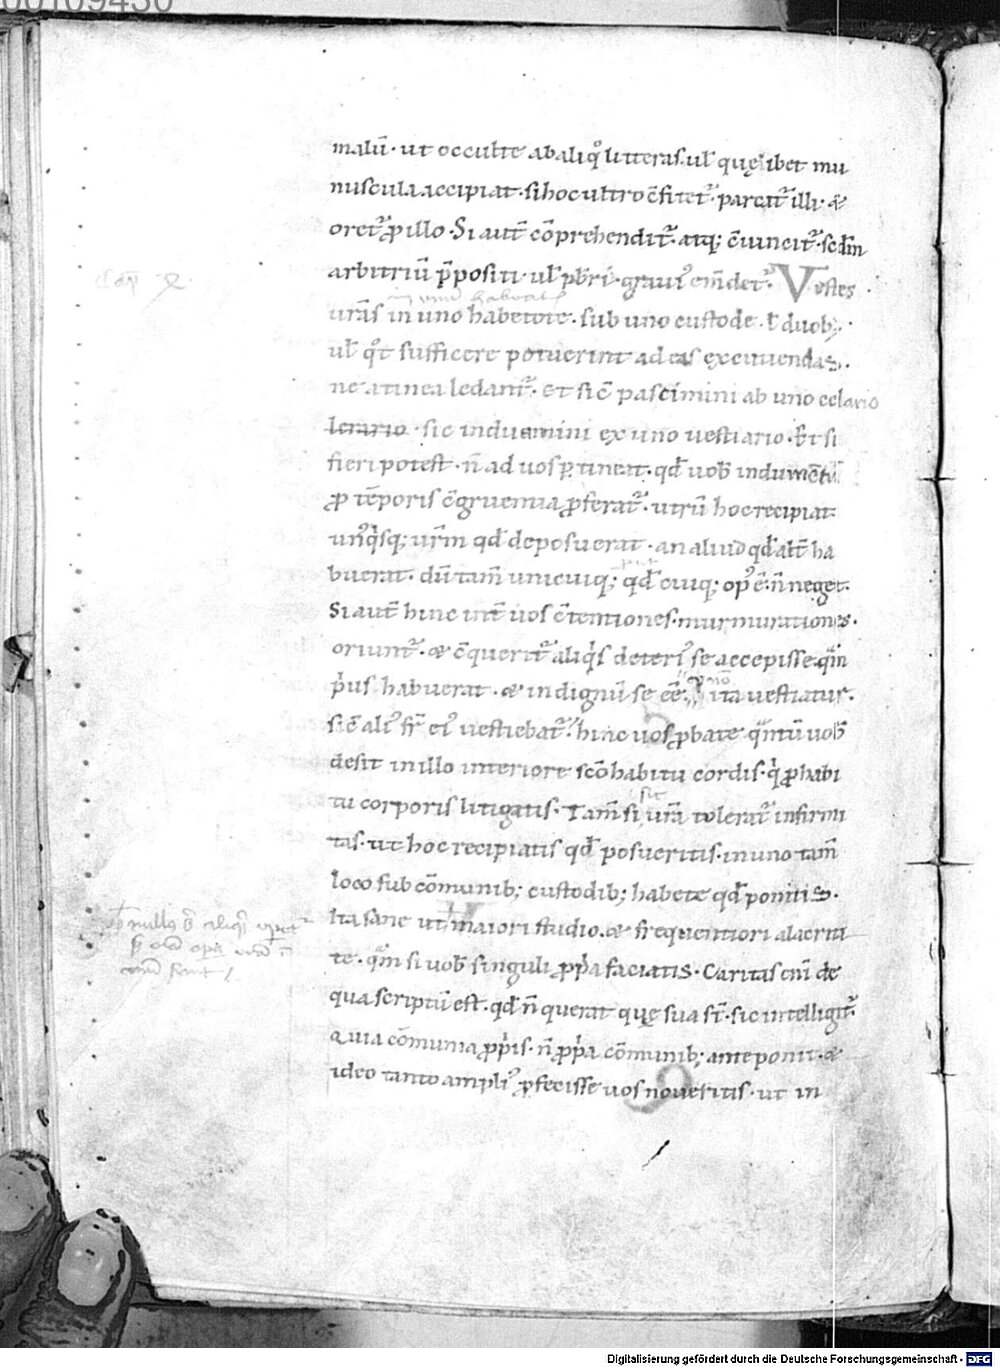 00109430
malū· ut occulte ab aliq̊ litteras· ul̄ quęlibet mu
nuscula accipiat· si hoc ultro c̄fitet᷑· parcat᷑ illi· &
oret᷑ ꝓ illo· Si aut̄ cōprehendit᷑· atq; c̄uincit᷑· scdm̄
arbitriū p̄positi· ul̄ pb̄ri· grauiꝰ em̄det᷑· Vestes
urās in uno habetote· sub uno custode· ł duob;·
ul̄ qͦt sufficere potuerint ad eas excutiendas·
ne a tinea ledant᷑· Et sic̄ pascimini ab uno celario
lerario· sic induemini ex uno uestiario· Et si
fieri potest· n̄ ad uos ꝑtineat· qd̄ uob̄ indumēti
ꝓ tēporis c̄gruentia ꝓferat᷑· utrū hoc recipiat
unꝰqͥsq; ur̄m qd̄ deposuerat· an aliud qd̄ alt̄ ha
buerat· dū tam̄ unicuiq; qd̄ cuiq; opꝰ ē· n̄ neget᷑·
Si aut̄ hinc int̄ uos c̄tentiones· murmurationes·
oriunt᷑· & c̄querit᷑ aliqͥs deteriꝰ se accepisse· qͣm̄
pͥus habuerat· & indignū se eē· qͥ n̄ ita uestiatur·
sic̄ aliꝰ fr̄ eiꝰ uestiebat᷑· hinc uos ꝓbate qͣntū uob̄
desit in illo interiore scō habitu cordis· qͥ ꝓ habi
tu corporis litigatis· Tam̄ si urā tolerat᷑ infirmi
tas· ut hoc recipiatis qd̄ posueritis· in uno tam̄
loco sub cōmunib; custodib; habete qd̄ ponitis·
Ita sane ut maiori studio· & frequentiori alacrita
te· qͣm si uob̄ singuli ꝓpͥa faciatis· Caritas eni̅ de
qua scriptū est· qd̄ n̄ querat quę sua st̄· sic intelligit᷑·
Quia cōmunia ꝓpͥis· n̄ ꝓpͥa cōmunib; anteponit· &
ideo tanto ampliꝰ ꝓfecisse uos noueritis· ut in
Digitalisierung gefördert durch die Deutsche Forschungsgemeinschaft - DFG